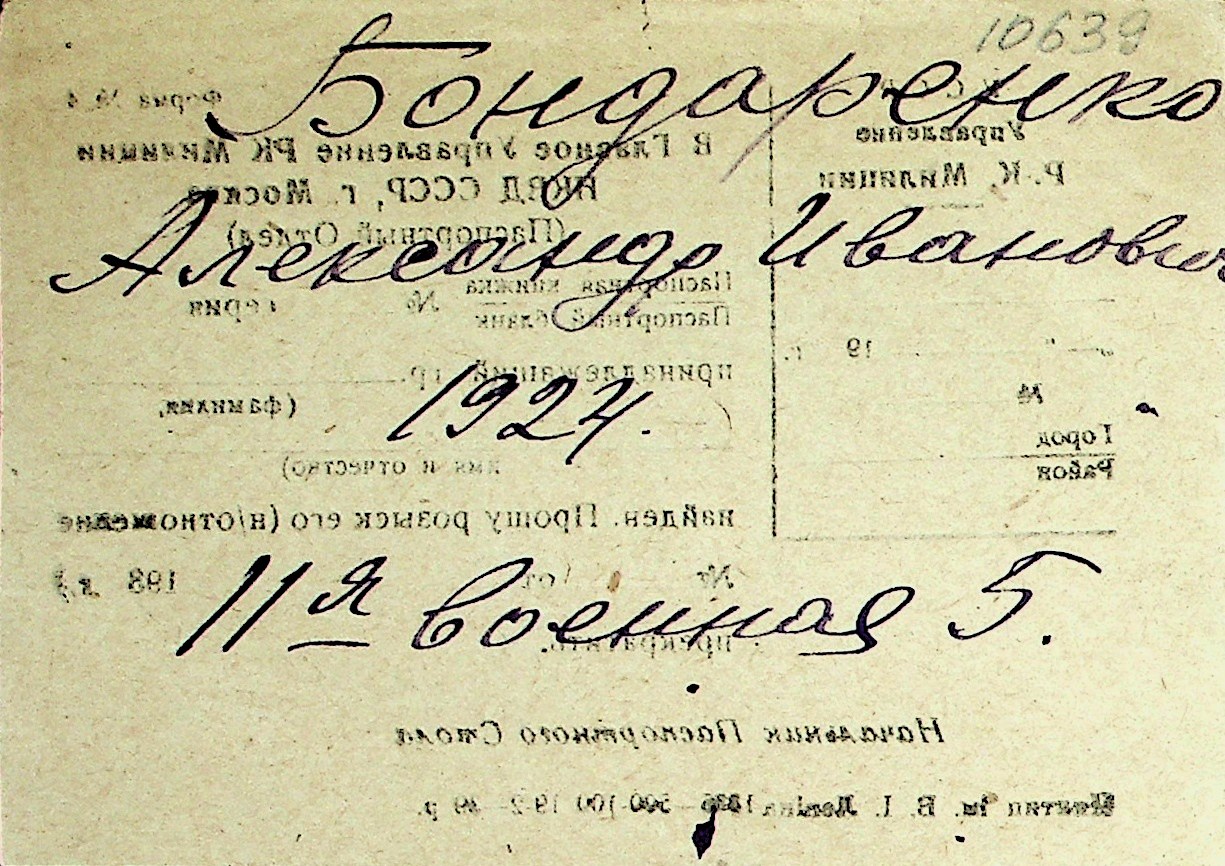 10639
Бондаренко
Форма № 4
У.С.С.Р.
Управление
Р. К. Милиции
В Главное Управление РК Милиции
НКВД СССР, г. Москва
(Паспортный Отдел)
Александр Иванович
Паспортная книжка
Паспортный бланк
№ серия
" " 19 г.
принадлежащий гр.
1924.
(фамилия,
№
Город
Район
имя и отчество)
найден. Прошу розыск его (н/отношение
№ от 193 г.)
11я военная 5.
прекратить.
Начальник Паспортного Стола
ім. В. І. Леніна